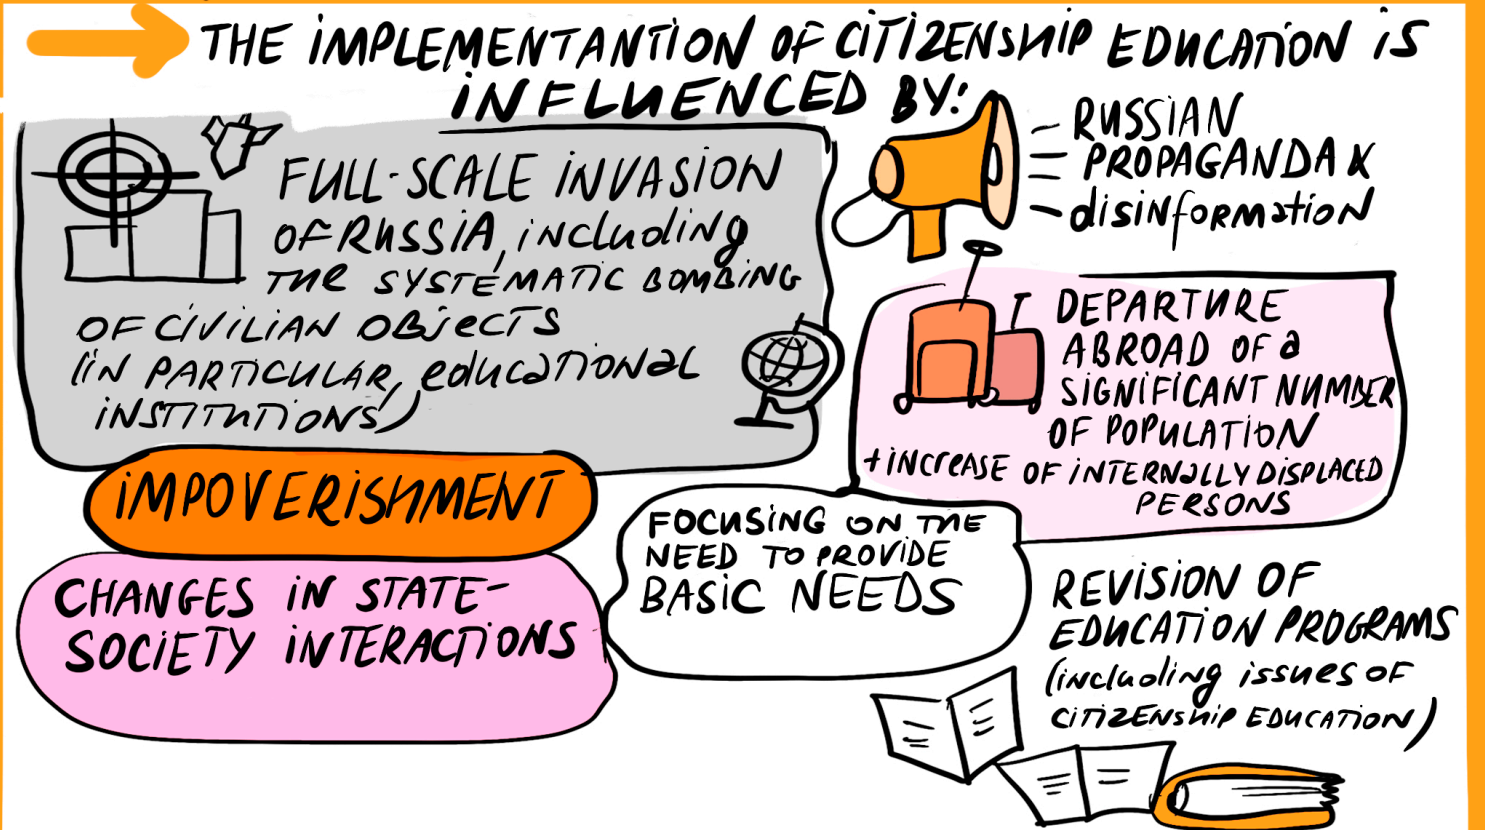 THE IMPLEMENTANTION OF CITIZENSHIP EDUCATION IS
INFLUENCED BY:
FULL-SCALE INVASION
OF RUSSIA, including
THE SYSTEMATIC BOMBING
OF CIVILIAN OBJECTS
(IN PARTICULAR, educational
INSTITUTIONS)
RUSSIAN
PROPAGANDA &
disinformation
DEPARTURE
ABROAD OF a
SIGNIFICANT NUMBER
OF POPULATION
+ INCREASE OF INTERNALLY DISPLACED
PERSONS
IMPOVERISHMENT
FOCUSING ON THE
NEED TO PROVIDE
BASIC NEEDS
CHANGES IN STATE-
SOCIETY INTERACTIONS
REVISION OF
EDUCATION PROGRAMS
(including issues OF
CITIZENSHIP EDUCATION)